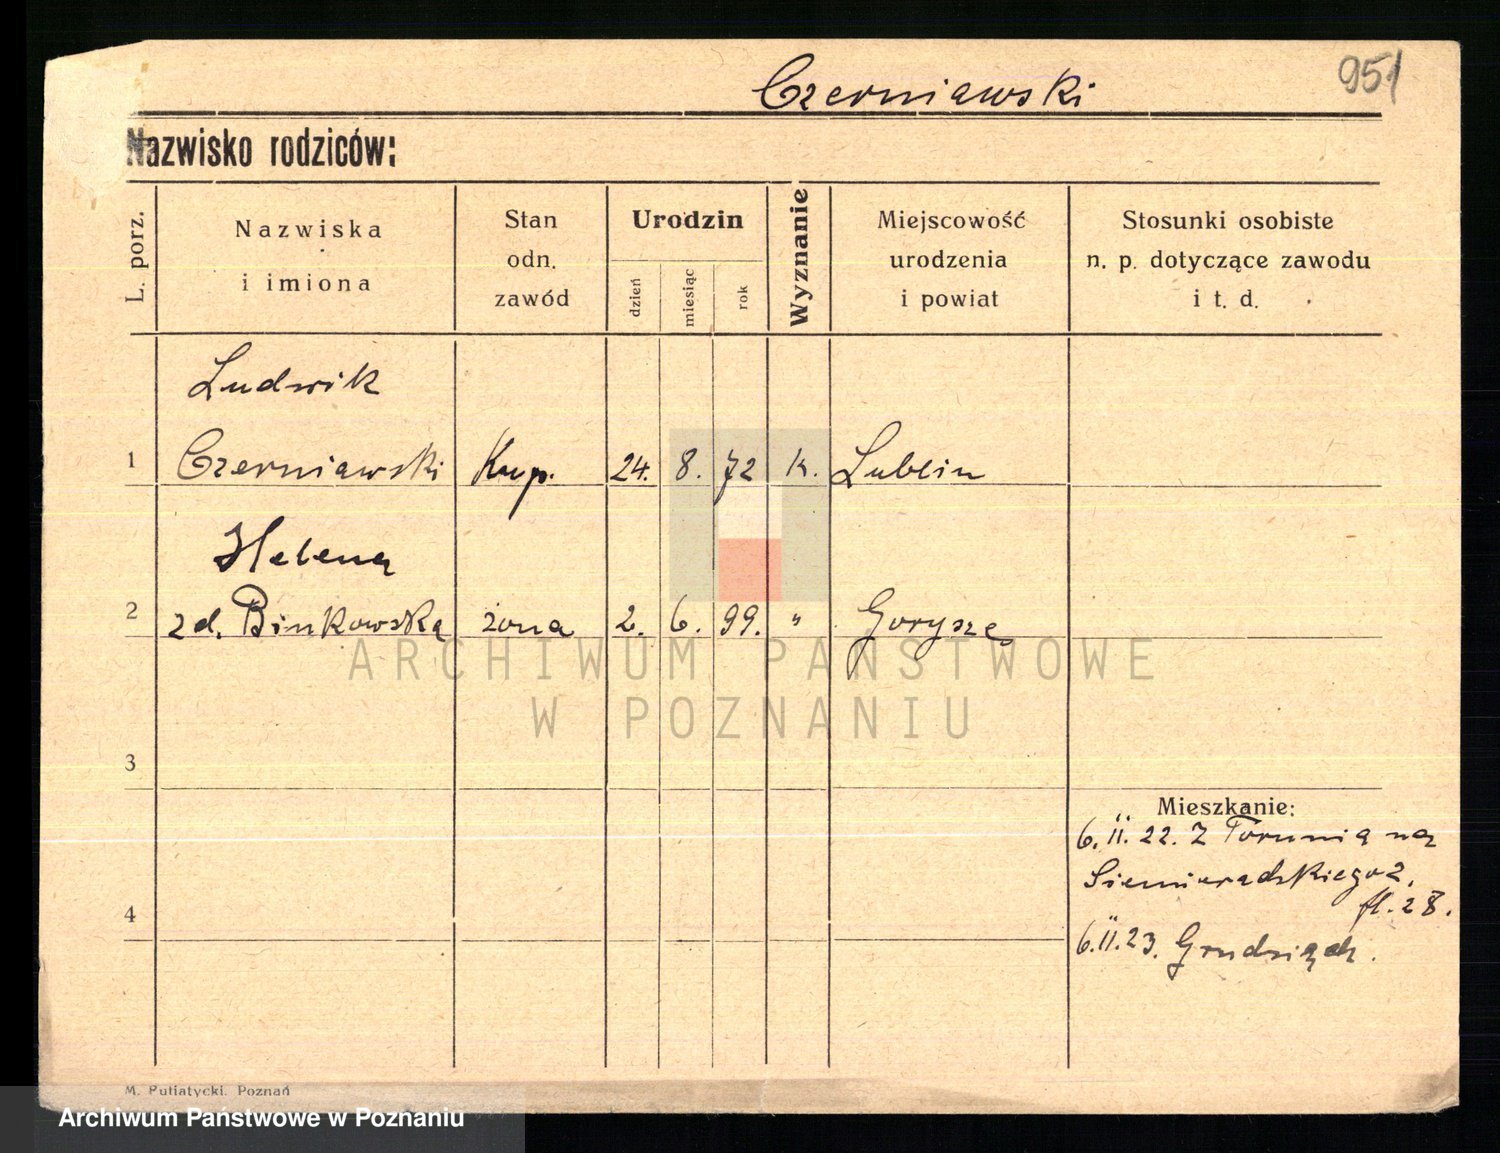 Czerniawski
951
Nazwisko rodziców:
L. porz.
Nazwiska
i imiona
Stan
odn.
zawód
Urodzin
dzień
miesiąc
rok
Wyznanie
Miejscowość
urodzenia
i powiat
Stosunki osobiste
n. p. dotyczące zawodu
i t. d.
Ludwik
1 Czerniawski Kup. 24. 8. 72 k. Lublin
Helena
2 zd. Binkowska żona 2. 6. 99. " Gorysze
ARCHIWUM PAŃSTWOWE
W POZNANIU
3
Mieszkanie:
6. II. 22. z Torunia na
Siemieradzkiego 2.
fl. 28.
4
6. II. 23. Grudziądz.
M. Putiatycki. Poznań
Archiwum Państwowe w Poznaniu